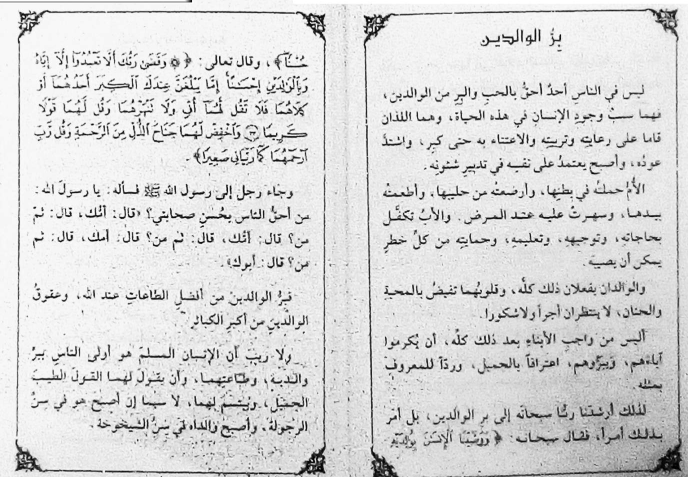 بِرُّ الوالدين
ليس في الناسِ أحدٌ أحقُّ بالحبِ والبِرِ من الوالدين،
فهما سببُ وجودِ الإنسانِ في هذه الحياة، وهما اللذان
قاما على رعايتِهِ وتربيتِهِ والاعتناء به حتى كبر، واشتدَّ
عودُه، وأصبح يعتمدُ على نفسِه في تدبيرِ شئونِه.
الأُمُّ حملتْهُ في بطنِها، وأرضعتْهُ من حليبِها، وأطعمتْهُ
بيدها، وسهرتْ عليه عند المرض. والأبُ تكفَّل
بحاجاتِه، وتوجيهِه، وتعليمِه، وحمايتِه من كلِّ خطرٍ
يمكن أن يصيبَه.
والوالدان يفعلان ذلك كلَّه، وقلوبُهما تفيضُ بالمحبةِ
والحنان، لا ينتظران أجراً ولا شكورا.
أليس من واجبِ الأبناءِ بعد ذلك كلِّه، أن يُكرموا
آباءَهم، ويَبَرُّوهم، اعترافاً بالجميل، وردّاً للمعروفِ
بمثله.
لذلك أرشدَنا ربُّنا سبحانَه إلى برِ الوالدين، بل أمَر
بذلك أمراً، فقال سبحانه: ﴿ وَوَصَّيْنَا الْإِنسَٰنَ بِوَٰلِدَيْهِ
حُسْنًا ﴾، وقال تعالى: ﴿ ۞ وَقَضَىٰ رَبُّكَ أَلَّا تَعْبُدُوٓا۟ إِلَّآ إِيَّاهُ
وَبِالْوَٰلِدَيْنِ إِحْسَٰنًا إِمَّا يَبْلُغَنَّ عِندَكَ الْكِبَرَ أَحَدُهُمَآ أَوْ
كِلَاهُمَا فَلَا تَقُل لَّهُمَآ أُفٍّ وَلَا تَنْهَرْهُمَا وَقُل لَّهُمَا قَوْلًا
كَرِيمًا ﴿٢٣﴾ وَاخْفِضْ لَهُمَا جَنَاحَ الذُّلِّ مِنَ الرَّحْمَةِ وَقُل رَّبِّ
ارْحَمْهُمَا كَمَا رَبَّيَانِي صَغِيرًا ﴾.
وجاء رجل إلى رسول الله ﷺ فسأله: يا رسولَ الله:
من أحقُّ الناس بِحُسْنِ صحابتي؟ «قال: أمُّك، قال: ثمَّ
من؟ قال: أمُّك، قال: ثم من؟ قال: أمك، قال: ثم
من؟ قال: أبوك».
فبِرُّ الوالدينِ من أفضلِ الطاعاتِ عند الله، وعقوقُ
الوالدَينِ من أكبرِ الكبائر.
ولا ريبَ أن الإنسانَ المسلمَ هو أولى الناسِ ببرِّ
والديه، وطاعتهما، وأن يقولَ لهما القولَ الطيبَ
الجميلَ، ويبتسمَ لهما، لا سيما إن أصبح هو في سِنِّ
الرجولة، وأصبح والداه في سِنِّ الشيخوخة.